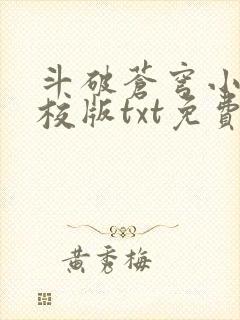 斗破蒼穹小
校版txt免費
黃秀梅